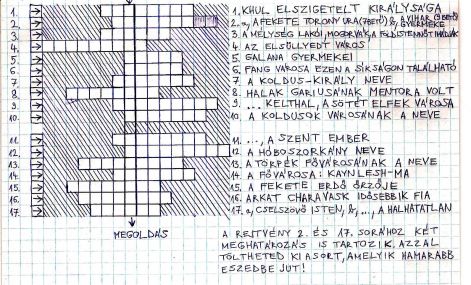 1. KHUL ELSZIGETELT KIRÁLYSÁGA
2. a, A FEKETE TORONY URA (7 BETŰ) b, A VIHAR GYERMEKE
3. A MÉLYSÉG LAKÓI, MOGORVÁK, A FÖLDISTENNŐT IMÁDJÁK
4. AZ ELSÜLLYEDT VÁROS
5. GALANA GYERMEKEI
6. FANG VÁROSA EZEN A SÍKSÁGON TALÁLHATÓ
7. A KOLDUS-KIRÁLY NEVE
8. HALAK GARIUSÁNAK MENTORA VOLT
9. ... KELTHAL, A SÖTÉT ELFEK VÁROSA
10. A KOLDUSOK VÁROSÁNAK A NEVE
11. ..., A SZENT EMBER
12. A HÓBOSZORKÁNY NEVE
13. A TÖRPÉK FŐVÁROSÁNAK A NEVE
14. A FŐVÁROSA: KAYNLESH-MA
15. A FEKETE ERDŐ ŐRZŐJE
16. ARKAT CHARAVASK IDŐSEBBIK FIA
17. a, CSELSZÖVŐ ISTEN, b, ..., A HALHATATLAN
MEGOLDÁS
A REJTVÉNY 2. ÉS 17. SORÁHOZ KÉT
MEGHATÁROZÁS IS TARTOZIK. AZZAL
TÖLTHETED KI A SORT, AMELYIK HAMARÁBB
ESZEDBE JUT!